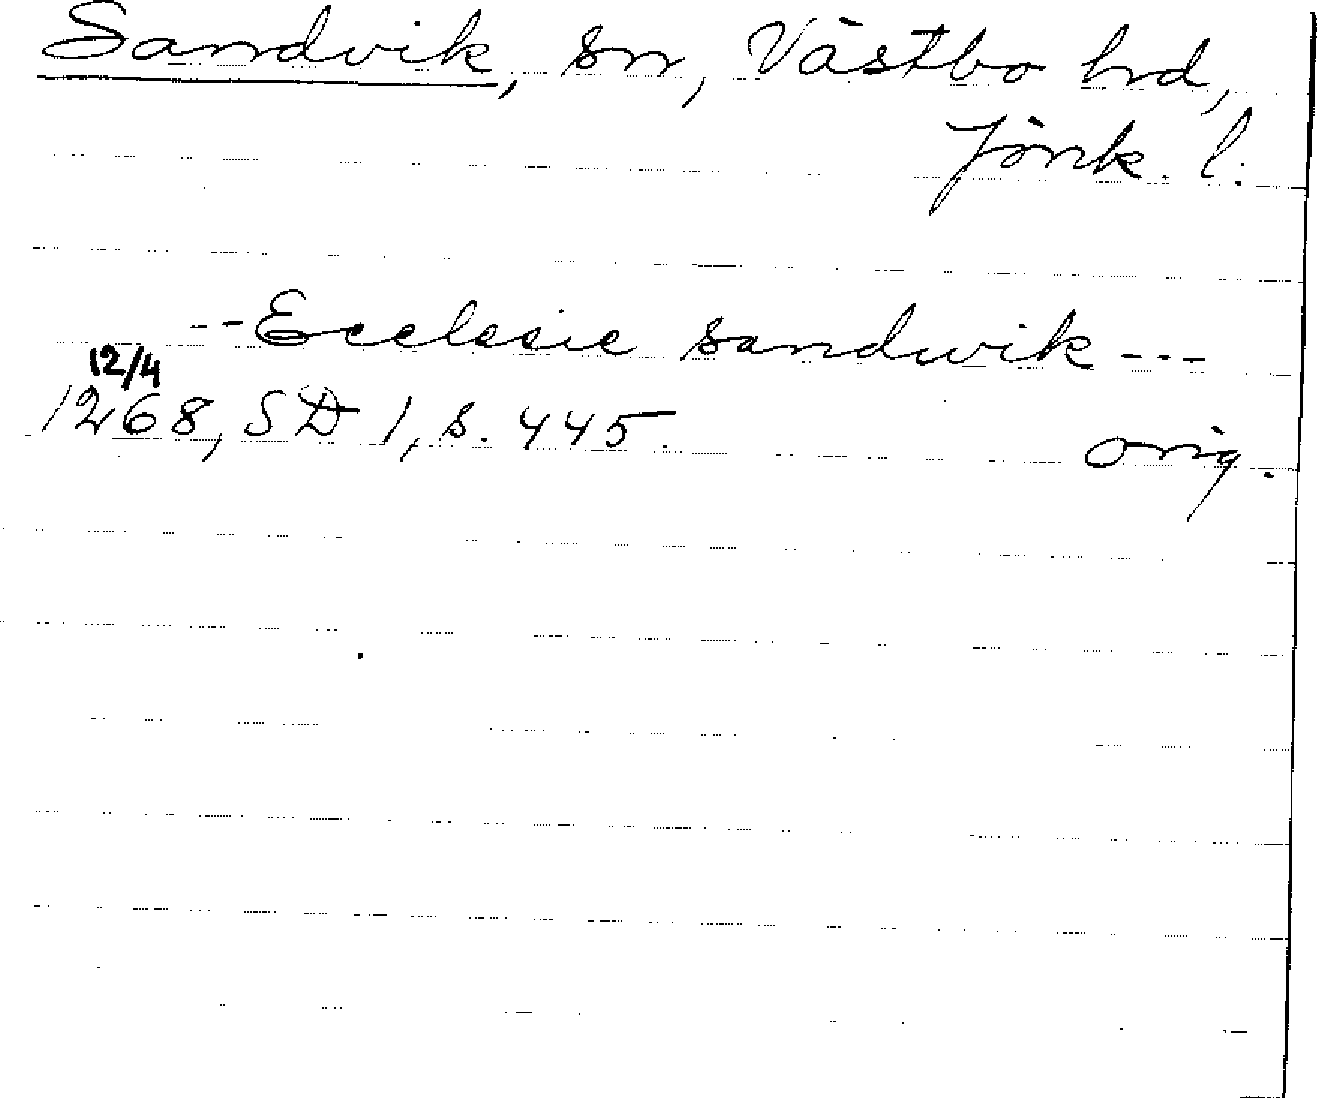 Sandvik, sn, Västbo hd,
Jönk. l.
--Ecclesie sandwik---
12/4
1268, SD 1, s. 445.
orig.